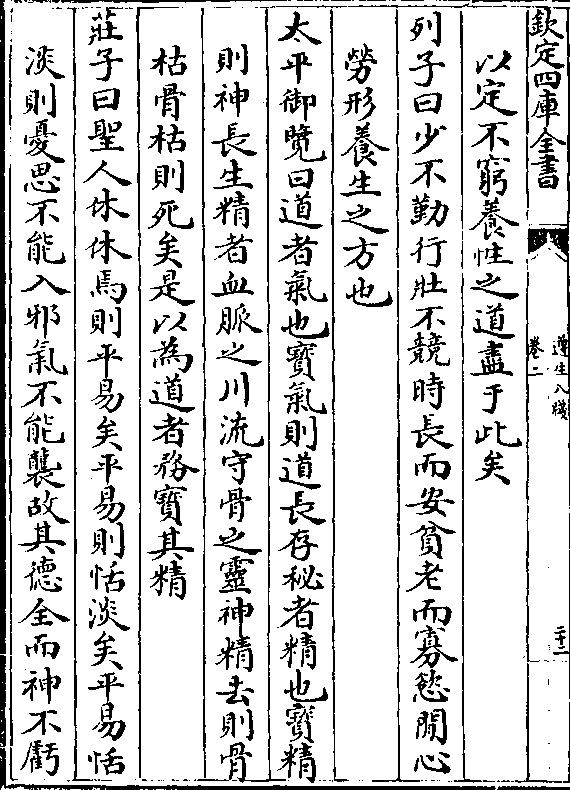 欽定四庫全書
遵生八牋
卷二
二十二
以定不窮養性之道盡于此矣
列子曰少不勤行壯不競時長而安貧老而寡慾閒心
勞形養生之方也
太平御覽曰道者氣也寶氣則道長存秘者精也寶精
則神長生精者血脈之川流守骨之靈神精去則骨
枯骨枯則死矣是以為道者務寶其精
莊子曰聖人休休焉則平易矣平易則恬淡矣平易恬
淡則憂思不能入邪氣不能襲故其德全而神不虧